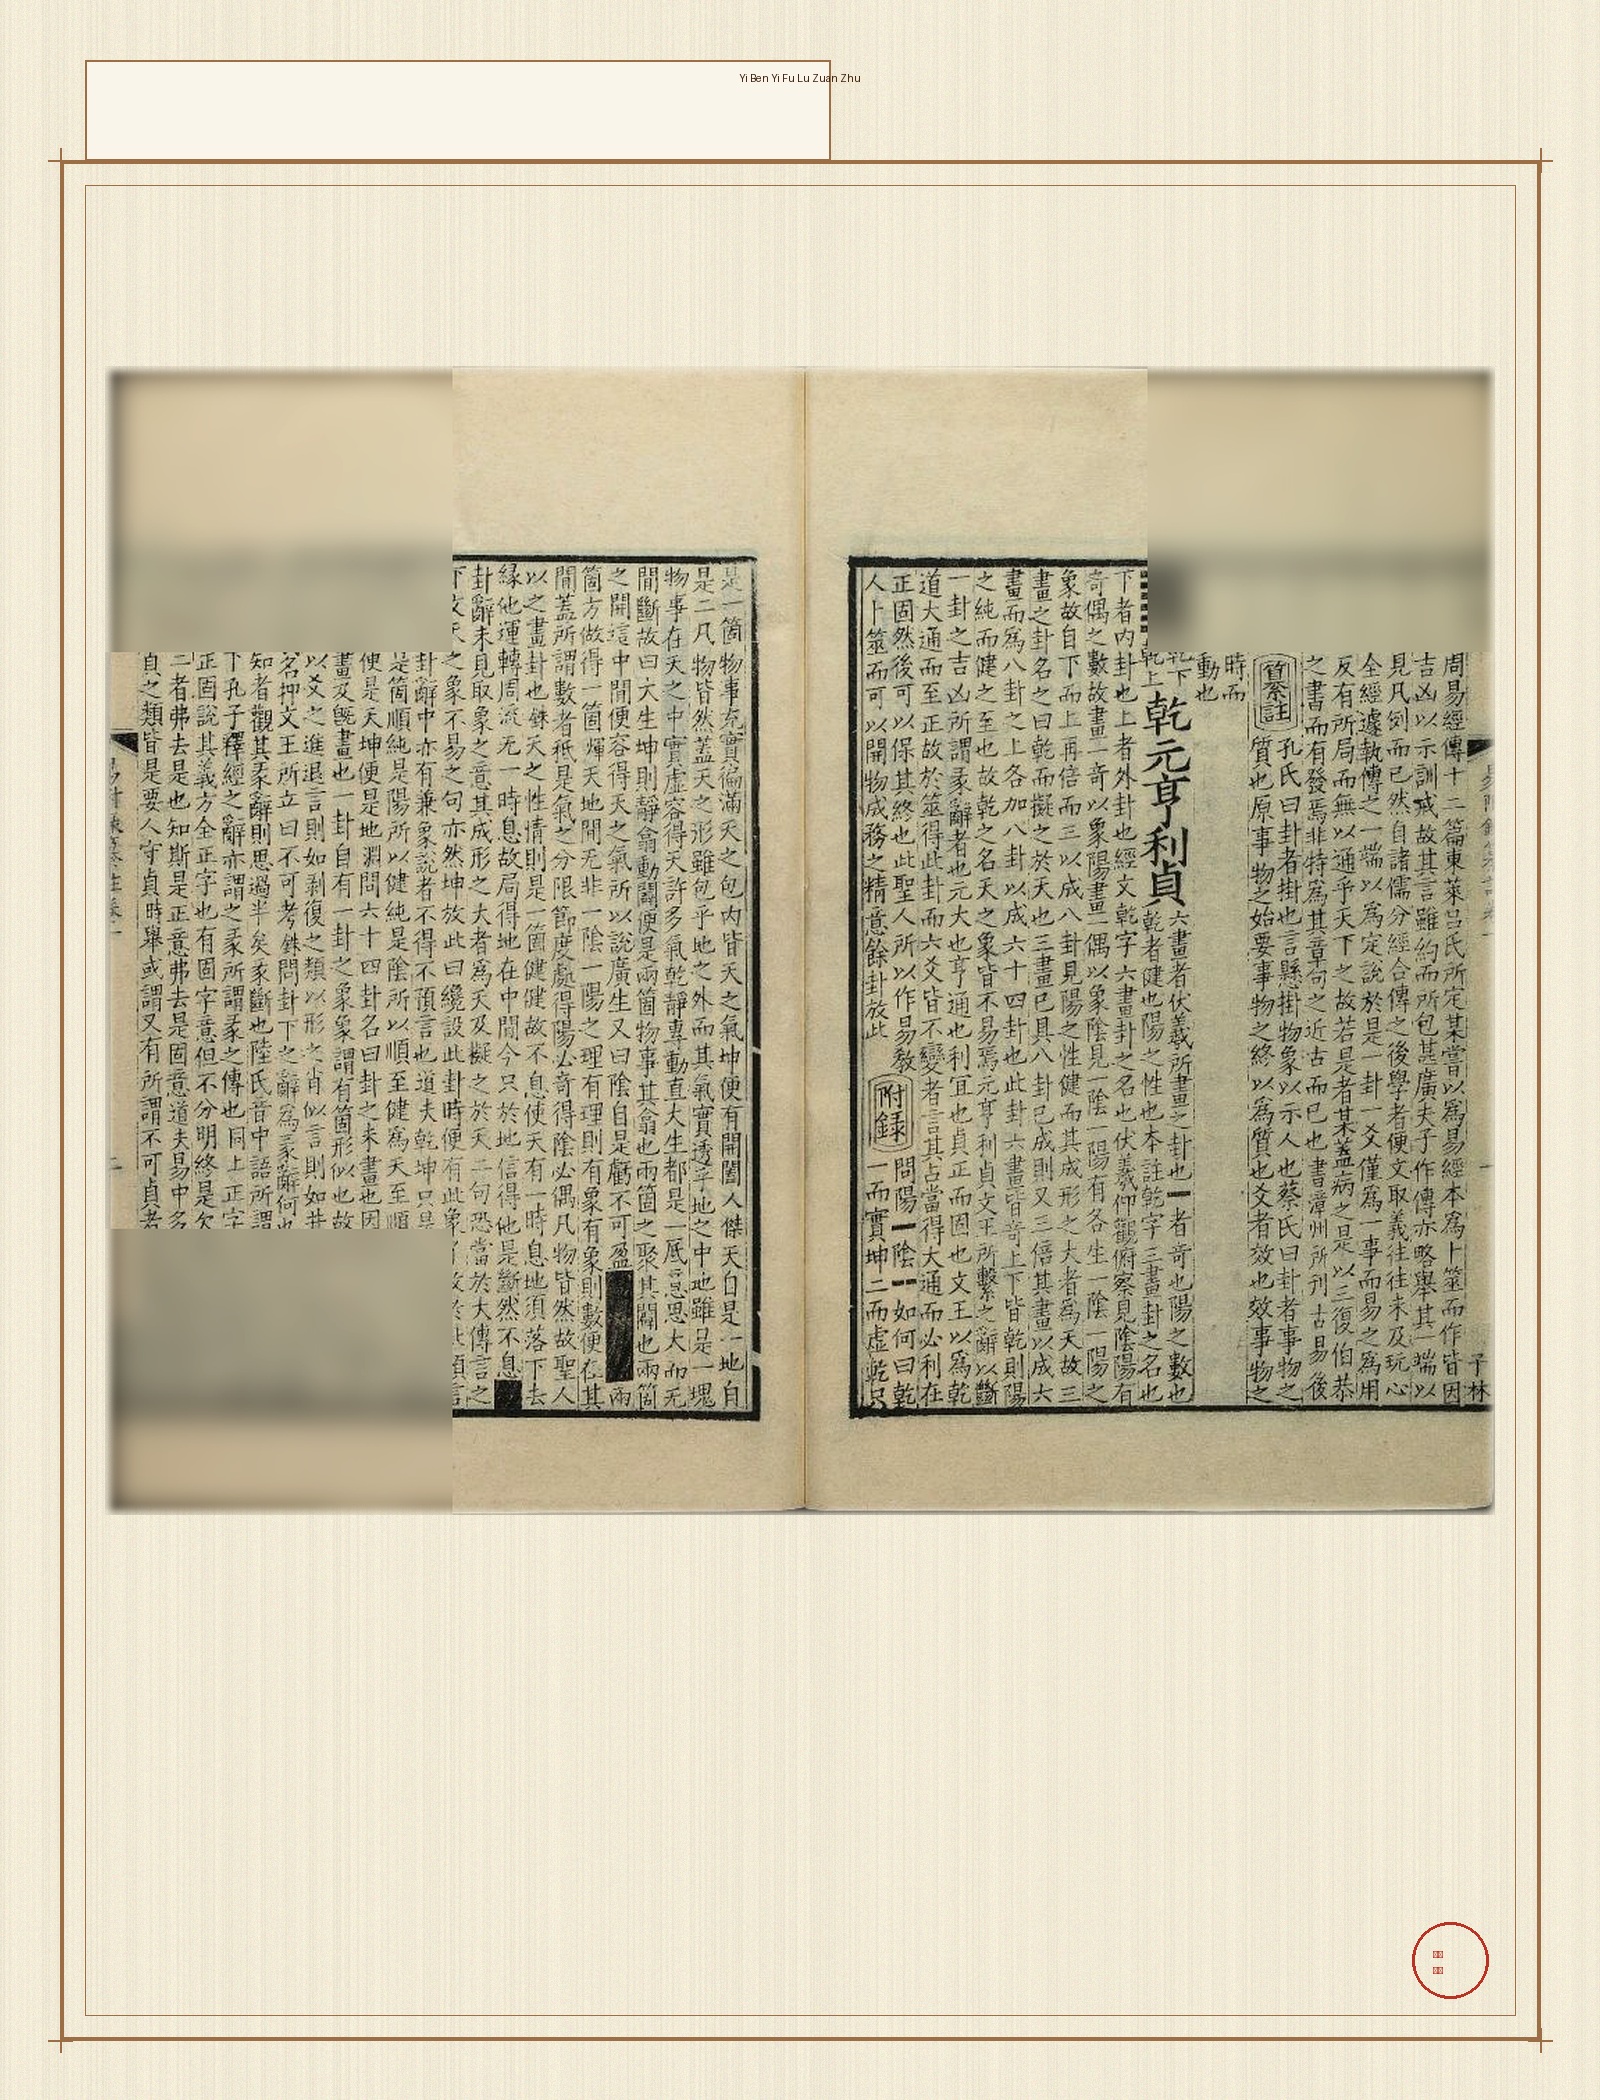 Yi Ben Yi Fu Lu Zuan Zhu
子林
周易經傳十二篇東萊呂氏所定某嘗以爲易經本爲卜筮而作皆因
吉凶以示訓戒故其言雖約而所包甚廣夫子作傳亦略舉其一端以
見凡例而已然自諸儒分經合傳之後學者便文取義往往未及玩心
全經遽執傳之一端以爲定說於是一卦一爻僅爲一事而易之爲用
反有所局而無以通乎天下之故若是者某蓋病之是以三復伯恭
之書而有發焉非特爲其章句之近古而已也書漳州所刊古易後
纂註
孔氏曰卦者掛也言懸掛物象以示人也蔡氏曰卦者事物之
質也原事物之始要事物之終以爲質也爻者效也效事物之
時而
動也
乾下
乾上
乾元亨利貞
六畫者伏羲所畫之卦也一者奇也陽之數也
乾者健也陽之性也本註乾字三畫卦之名也
下者內卦也上者外卦也經文乾字六畫卦之名也伏羲仰觀俯察見陰陽有
奇偶之數故畫一奇以象陽畫一偶以象陰見一陰一陽有各生一陰一陽之
象故自下而上再倍而三以成八卦見陽之性健而其成形之大者爲天故三
畫之卦名之曰乾而擬之於天也三畫已具八卦已成則又三倍其畫以成六
畫而爲八卦之上各加八卦以成六十四卦也此卦六畫皆奇上下皆乾則陽
之純而健之至也故乾之名天之象皆不易焉元亨利貞文王所繫之辭以斷
一卦之吉凶所謂彖辭者也元大也亨通也利宜也貞正而固也文王以爲乾
道大通而至正故於筮得此卦而六爻皆不變者言其占當得大通而必利在
正固然後可以保其終也此聖人所以作易教
人卜筮而可以開物成務之精意餘卦放此
附錄
問陽一陰一如何曰乾
一而實坤二而虛乾只
是一箇物事充實徧滿天之包内皆天之氣坤便有開闔人傑天自是一地自
是二凡物皆然蓋天之形雖包乎地之外而其氣實透乎地之中地雖是一塊
物事在天之中實虛容得天許多氣乾靜專動直大生都是一底意思大而无
間斷故曰大生坤則靜翕動闢便是兩箇物事其翕也兩箇之聚其闢也兩箇
之開這中間便容得天之氣所以說廣生又曰陰自是虧不可盈 兩
箇方做得一箇燀天地間无非一陰一陽之理有理則有象有象則數便在其
間蓋所謂數者祇是氣之分限節度處得陽必奇得陰必偶凡物皆然故聖人
以之畫卦也銖天之性情則是一箇健健故不息使天有一時息地須落下去
緣他運轉周流无一時息故局得地在中間今只於地信得他是斷然不息
卦辭未見取象之意其成形之大者爲天及擬之於天二句恐當於大傳言之
下文天之象不易之句亦然坤放此曰纔設此卦時便有此象
卦辭中亦有兼象說者不得不預言也道夫乾坤只是
是箇順純是陽所以健純是陰所以順至健爲天至順
便是天坤便是地淵問六十四卦名曰卦之未畫也因
畫及旣畫也一卦自有一卦之象象謂有箇形似也故
以爻之進退言則如剥復之類以形之肖似言則如井
名抑文王所立曰不可考銖問卦下之辭爲彖辭何也
知者觀其彖辭則思過半矣彖斷也陸氏音中語所謂
下孔子釋經之辭亦謂之彖所謂彖之傳也同上正字
正固說其義方全正字也有固字意但不分明終是欠
二者弗去是也知斯是正意弗去是固意道夫易中多
貞之類皆是要人守貞時舉或謂又有所謂不可貞者